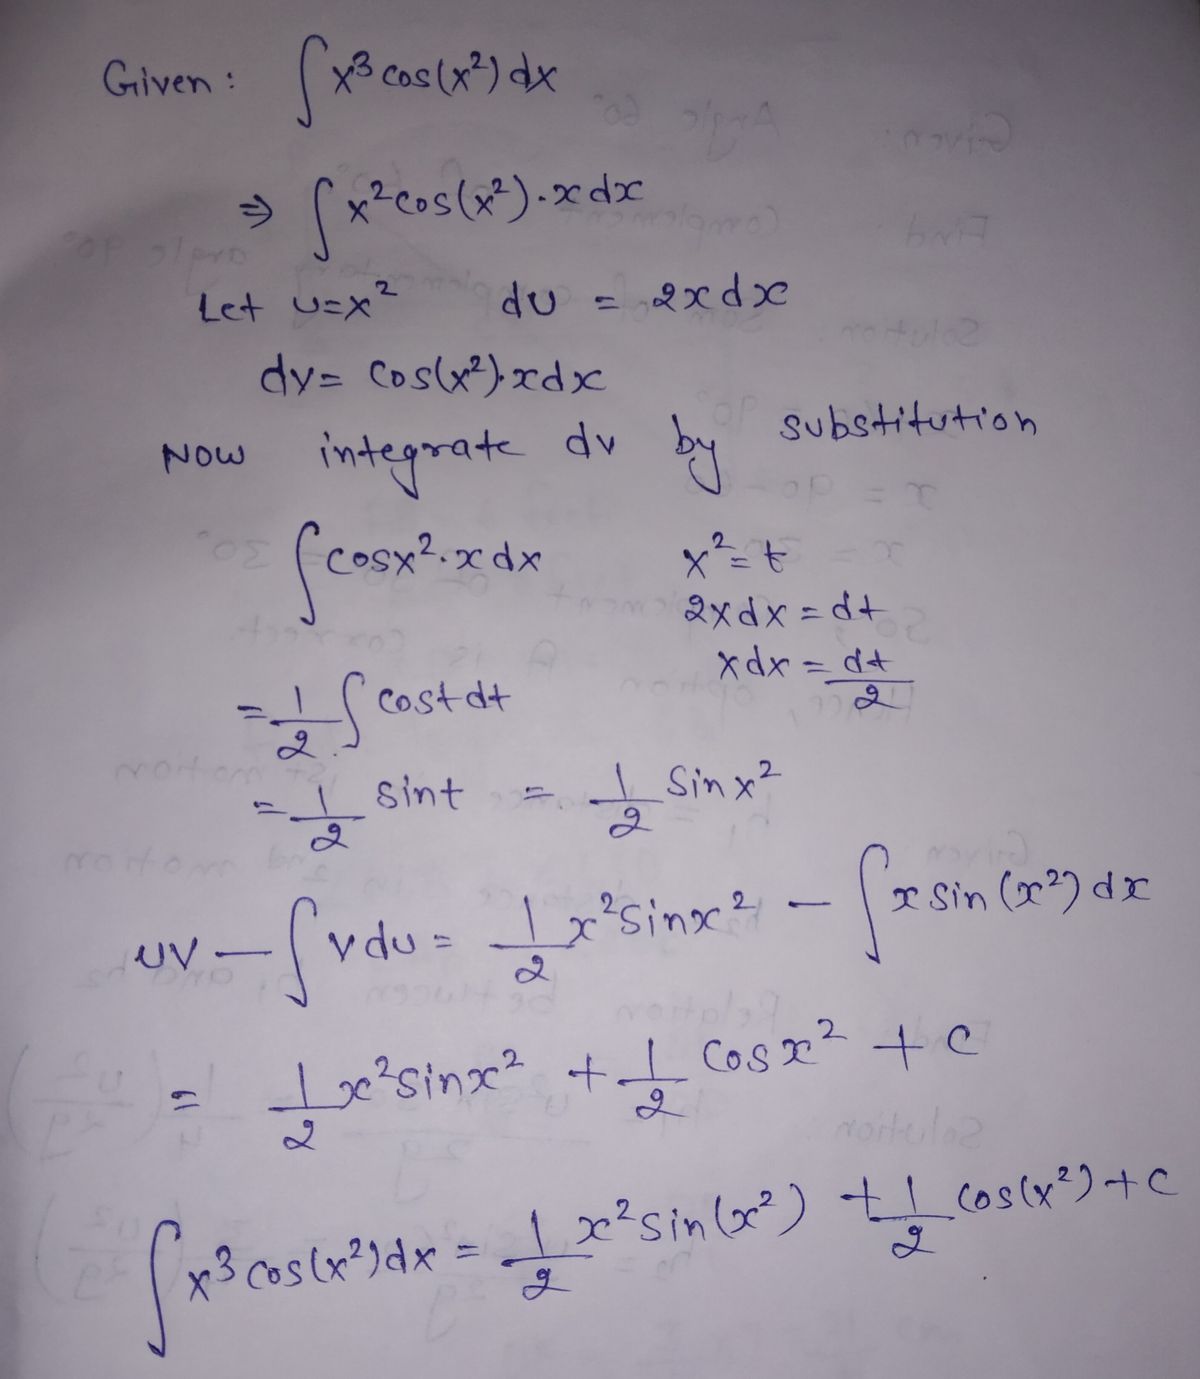 Given: ∫x³cos(x²)dx
⇒ ∫x²cos(x²).xdx
Let u=x² du = 2xdx
dv= cos(x²).xdx
Now integrate dv by substitution
∫cosx².xdx x²=t
2xdx = dt
xdx = dt/2
= 1/2 ∫cost dt
= 1/2 sint = 1/2 Sinx²
uv − ∫vdu = 1/2 x²Sinx² − ∫x sin(x²)dx
= 1/2 x²sinx² + 1/2 Cosx² + c
∫x³cos(x²)dx = 1/2 x²sin(x²) + 1/2 cos(x²)+c